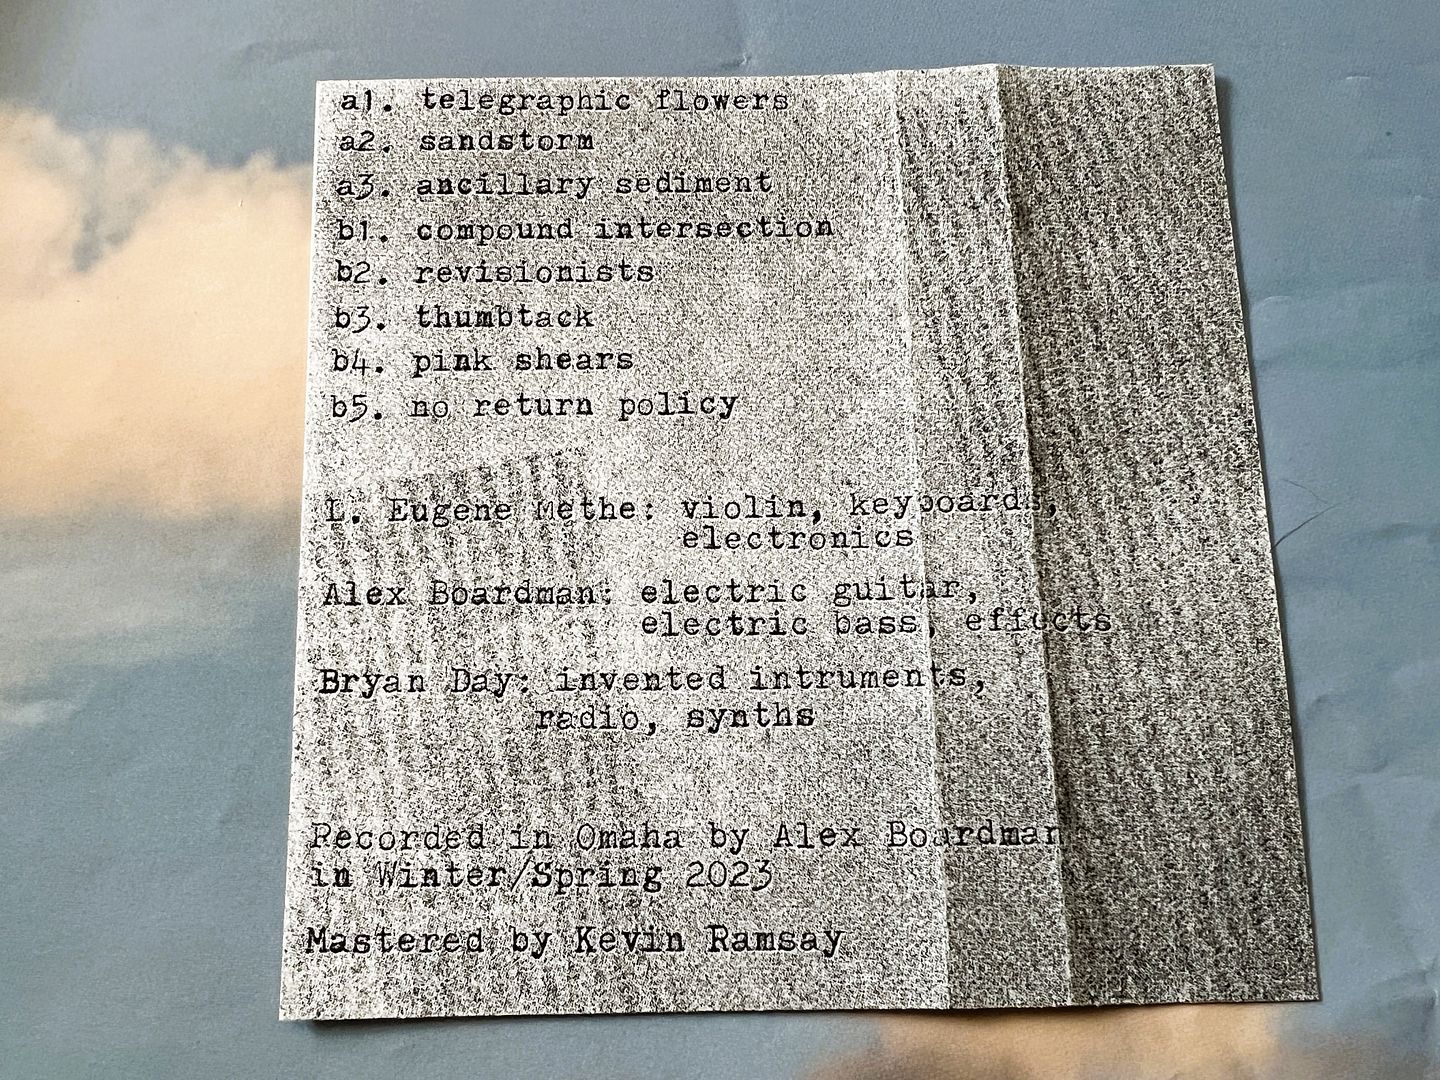 a1. telegraphic flowers
a2. sandstorm
a3. ancillary sediment
b1. compound intersection
b2. revisionists
b3. thumbtack
b4. pink shears
b5. no return policy
L. Eugene Methe: violin, keyboards,
electronics
Alex Boardman: electric guitar,
electric bass, effects
Bryan Day: invented intruments,
radio, synths
Recorded in Omaha by Alex Boardman
in Winter/Spring 2023
Mastered by Kevin Ramsay